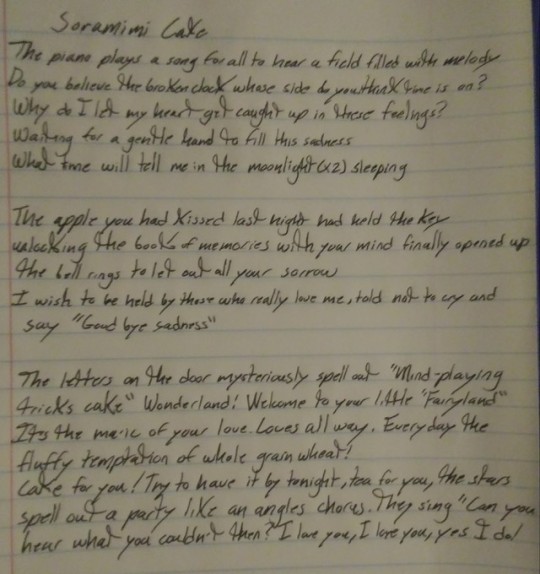 Soramimi Cake
The piano plays a song for all to hear a field filled with melody
Do you believe the broken clock whose side do you think time is on?
Why do I let my heart get caught up in these feelings?
Waiting for a gentle hand to fill this sadness
What time will tell me in the moonlight (x2) sleeping
The apple you had kissed last night had held the key
unlocking the books of memories with your mind finally opened up
the bell rings to let out all your sorrow
I wish to be held by those who really love me, told not to cry and
say "Good bye sadness"
The letters on the door mysteriously spell out "Mind-playing
tricks cake" Wonderland! Welcome to your little "Fairyland"
It's the magic of your love. Loves all way. Everyday the
fluffy temptation of whole grain wheat!
Cake for you! Try to have it by tonight, tea for you, the stars
spell out a party like an angles chorus. They sing "Can you
hear what you couldn't then?" I love you, I love you, yes I do!